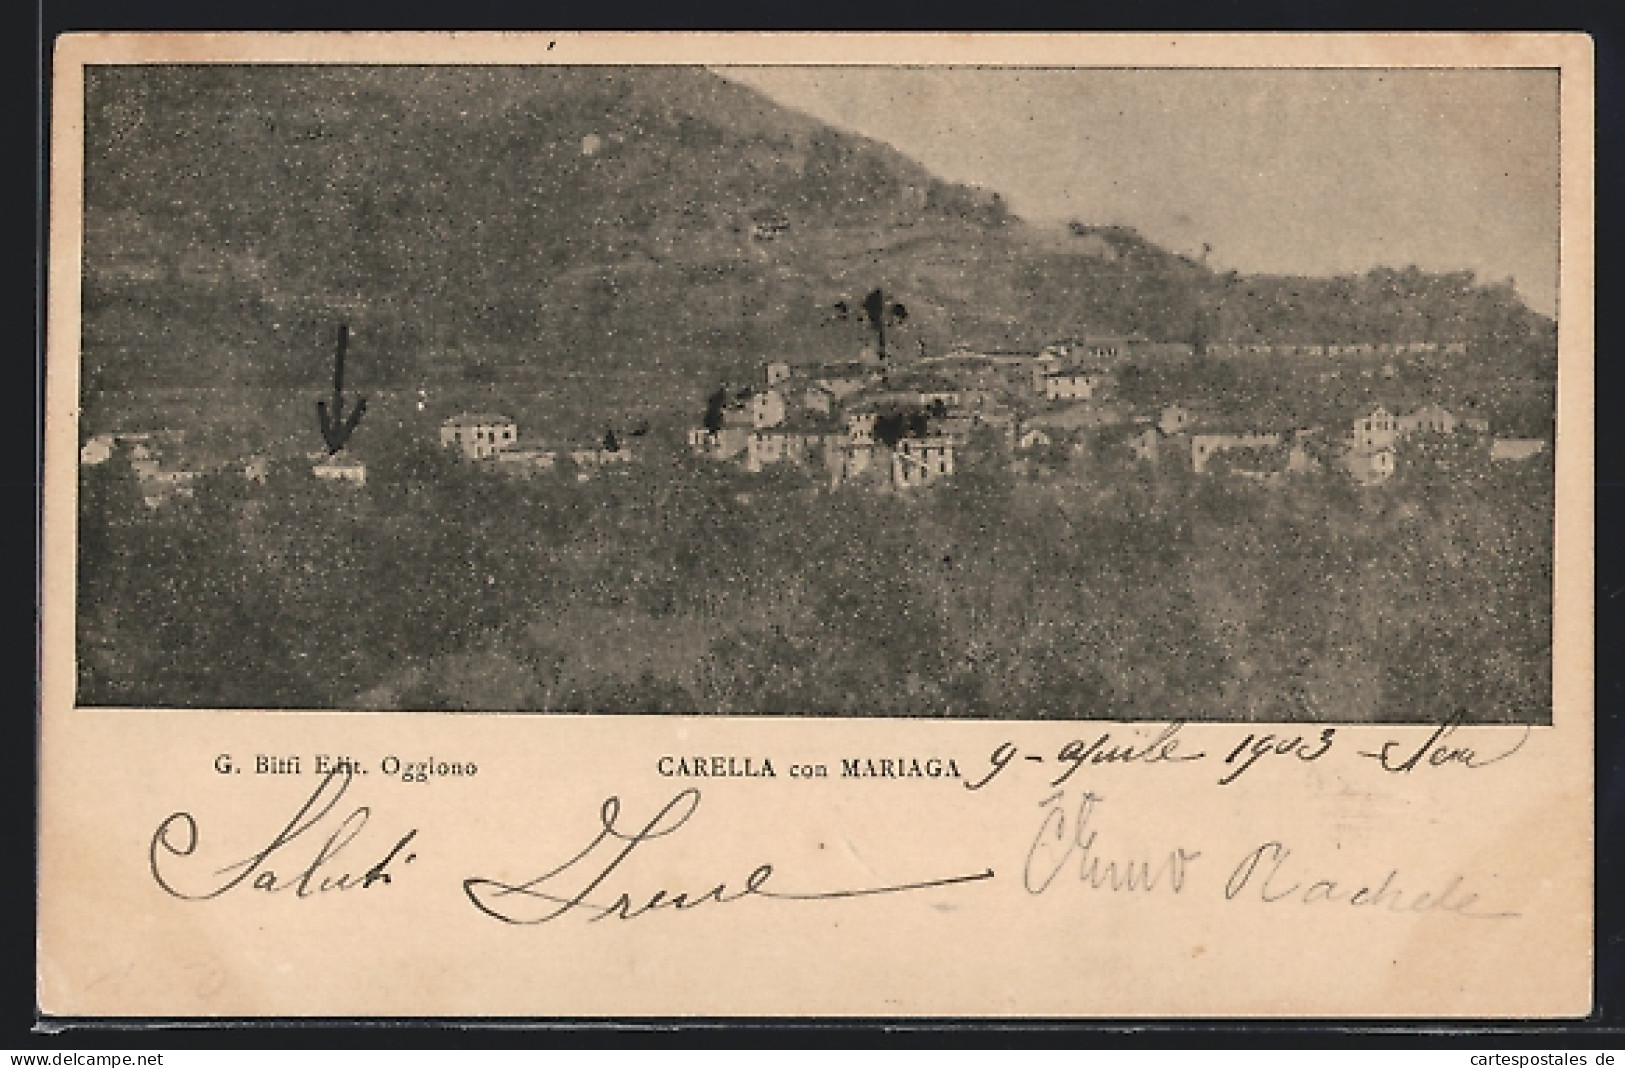 G. Bitfi Edit. Oggiono CARELLA con MARIAGA 9 - aprile 1903 - Sera
Saluti Irene
delcampe.net cartespostales de